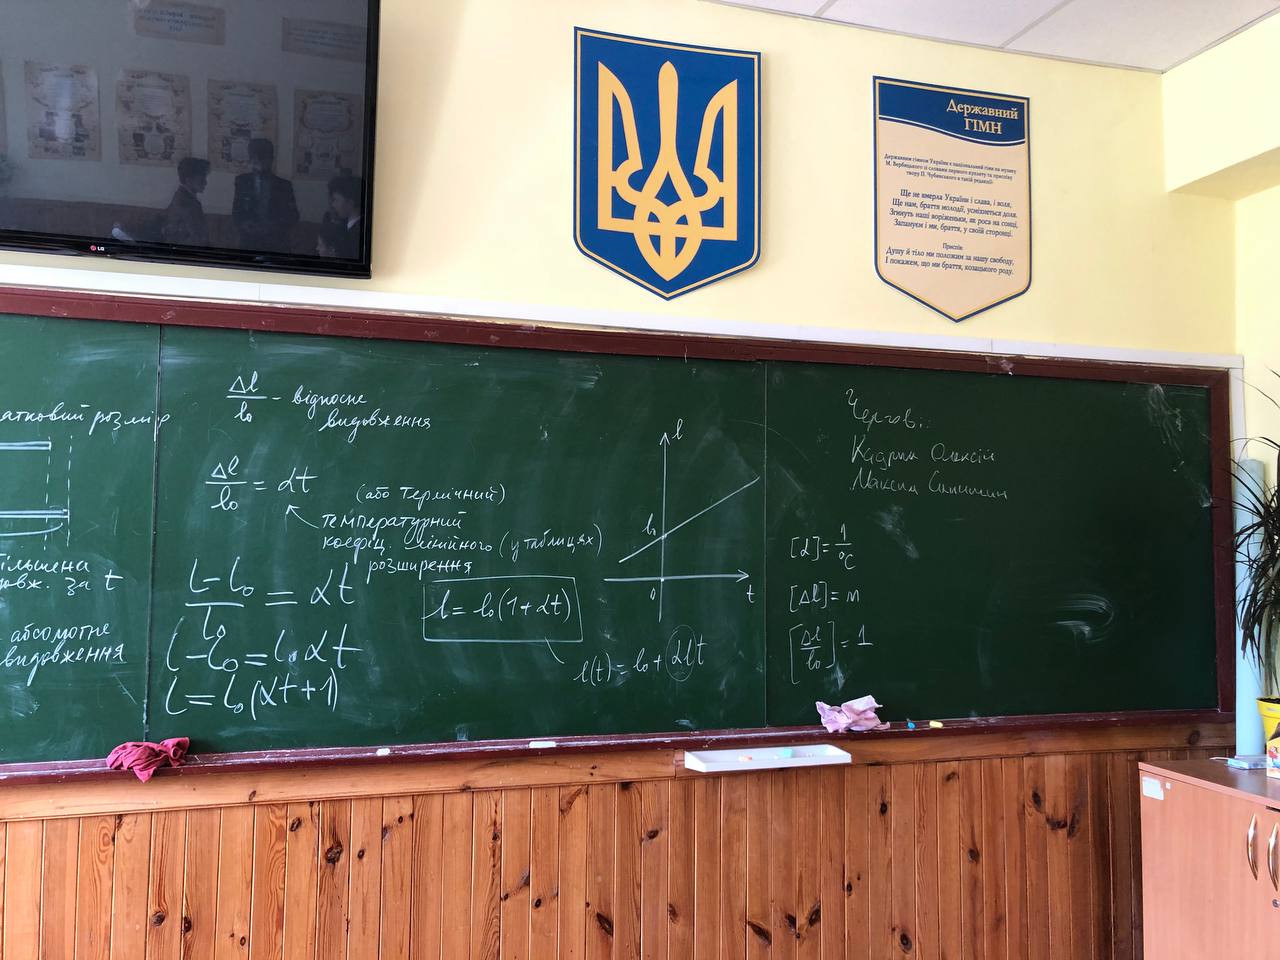 LG
Державний
ГІМН
Державним гімном України є національний гімн на музику
М. Вербицького зі словами першого куплету та приспіву
твору П. Чубинського в такій редакції:
Ще не вмерла України і слава, і воля,
Ще нам, браття молодії, усміхнеться доля.
Згинуть наші воріженьки, як роса на сонці,
Запануєм і ми, браття, у своїй сторонці.
Приспів:
Душу й тіло ми положим за нашу свободу,
І покажем, що ми браття, козацького роду.
атковий розмір
більшена
довж. за t
абсолютне
видовження
Δl/l₀ - відносне
видовження
Δl/l₀ = αt
(або термічний)
температурний
коефіц. лінійного (у таблицях)
розширення
(l-l₀)/l₀ = αt
l-l₀ = l₀αt
l = l₀(αt+1)
l = l₀(1+αt)
l(t) = l₀ + αlt
l
l₀
0
t
Чергові:
Олексій
Максим
[α] = 1/°C
[Δl] = м
[Δl/l₀] = 1